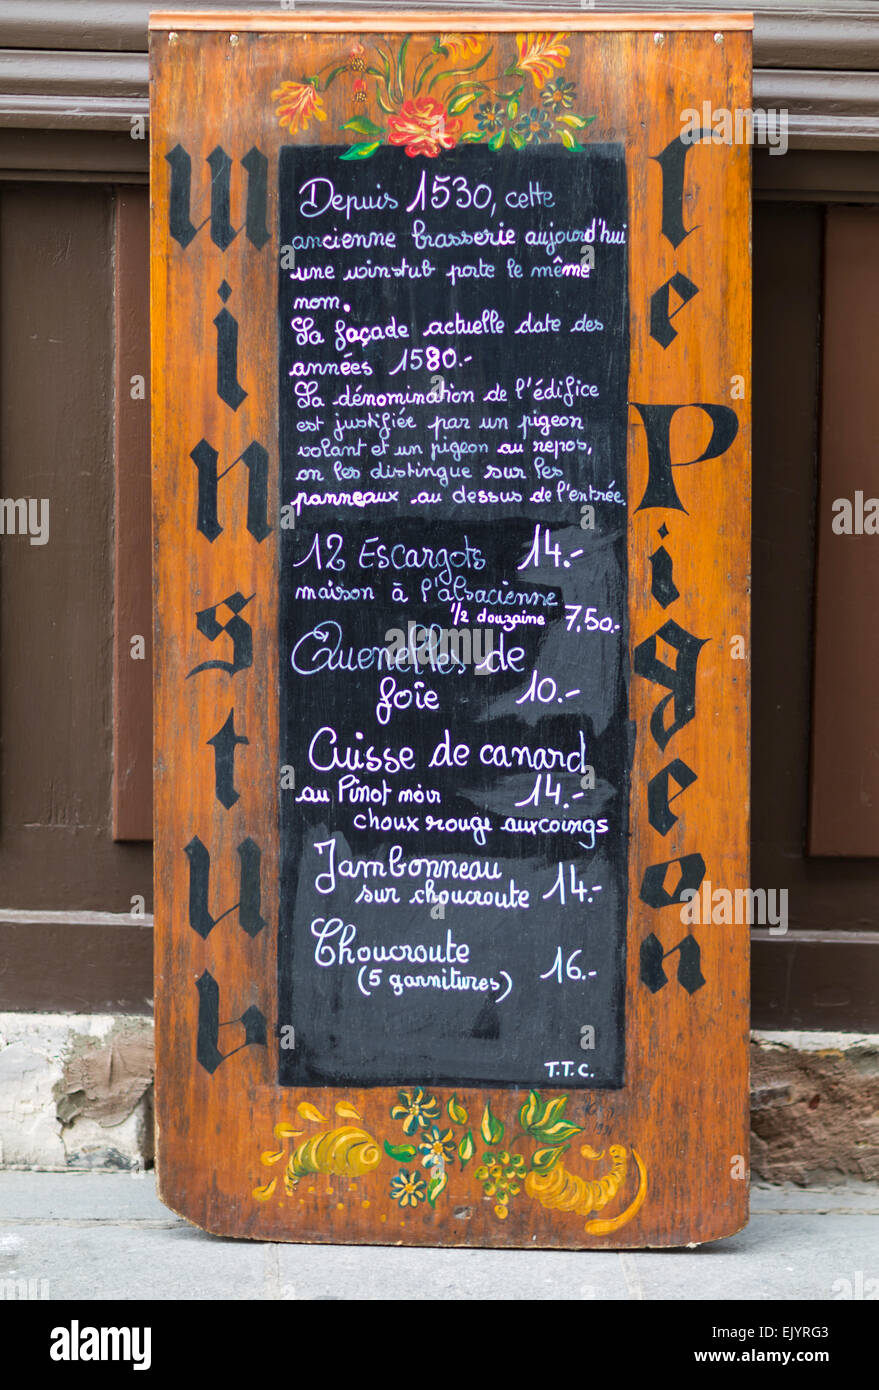 winstub
le Pigeon
Depuis 1530, cette
ancienne brasserie aujourd'hui
une winstub porte le même
nom.
La façade actuelle date des
années 1580.-
La dénomination de l'édifice
est justifiée par un pigeon
volant et un pigeon au repos,
on les distingue sur les
panneaux au dessus de l'entrée.
12 Escargots 14.-
maison à l'alsacienne
1/2 douzaine 7,50.-
Quenelles de
foie 10.-
Cuisse de canard
au Pinot noir 14.-
choux rouge aux coings
Jambonneau
sur choucroute 14.-
Choucroute
(5 garnitures) 16.-
T.T.C.
alamy
Image ID: EJYRG3
www.alamy.com